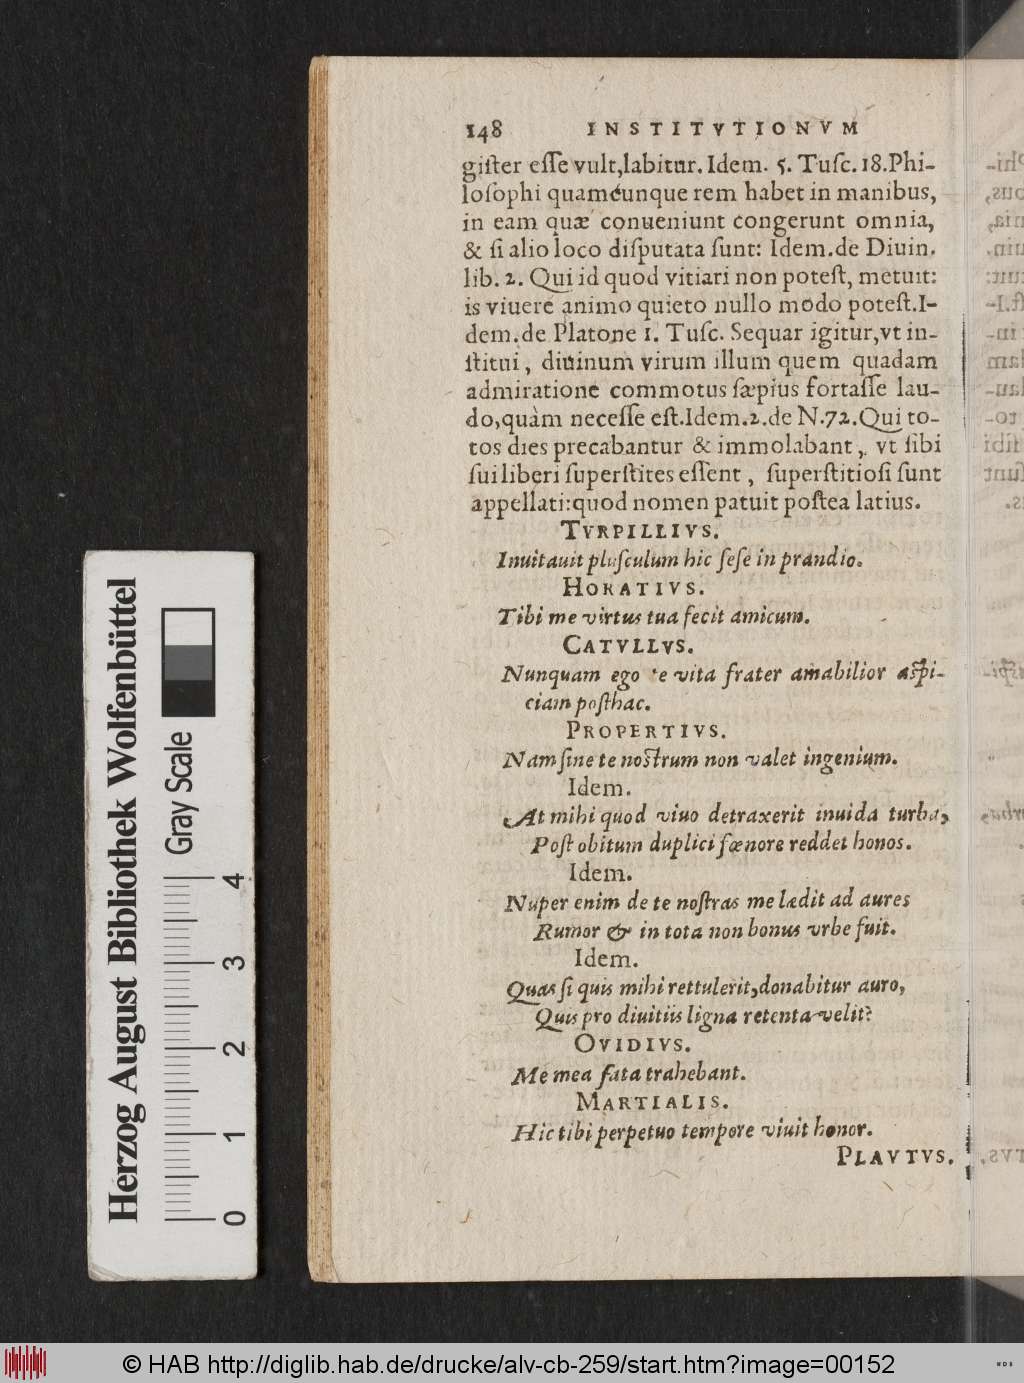 148 INSTITVTIONVM
giſter eſſe vult,labitur. Idem. 5. Tuſc. 18. Phi-
loſophi quamcunque rem habet in manibus,
in eam quæ conueniunt congerunt omnia,
& ſi alio loco diſputata ſunt: Idem. de Diuin.
lib. 2. Qui id quod vitiari non poteſt, metuit:
is viuere animo quieto nullo modo poteſt. I-
dem. de Platone 1. Tuſc. Sequar igitur, vt in-
ſtitui, diuinum virum illum quem quadam
admiratione commotus ſæpius fortaſſe lau-
do, quàm neceſſe eſt. Idem. 2. de N. 72. Qui to-
tos dies precabantur & immolabant, vt ſibi
ſui liberi ſuperſtites eſſent, ſuperſtitioſi ſunt
appellati: quod nomen patuit poſtea latius.
TVRPILLIVS.
Inuitauit pluſculum hic ſeſe in prandio.
HORATIVS.
Tibi me virtus tua fecit amicum.
CATVLLVS.
Nunquam ego te vita frater amabilior aſpi-
ciam poſthac.
PROPERTIVS.
Nam ſine te noſtrum non valet ingenium.
Idem.
At mihi quod viuo detraxerit inuida turba,
Poſt obitum duplici fœnore reddet honos.
Idem.
Nuper enim de te noſtras me lædit ad aures
Rumor & in tota non bonus vrbe fuit.
Idem.
Quas ſi quis mihi rettulerit, donabitur auro,
Quis pro diuitiis ligna retenta velit?
OVIDIVS.
Me mea fata trahebant.
MARTIALIS.
Hic tibi perpetuo tempore viuit honor.
PLAVTVS.
Herzog August Bibliothek Wolfenbüttel
Gray Scale
0 1 2 3 4
© HAB http://diglib.hab.de/drucke/alv-cb-259/start.htm?image=00152